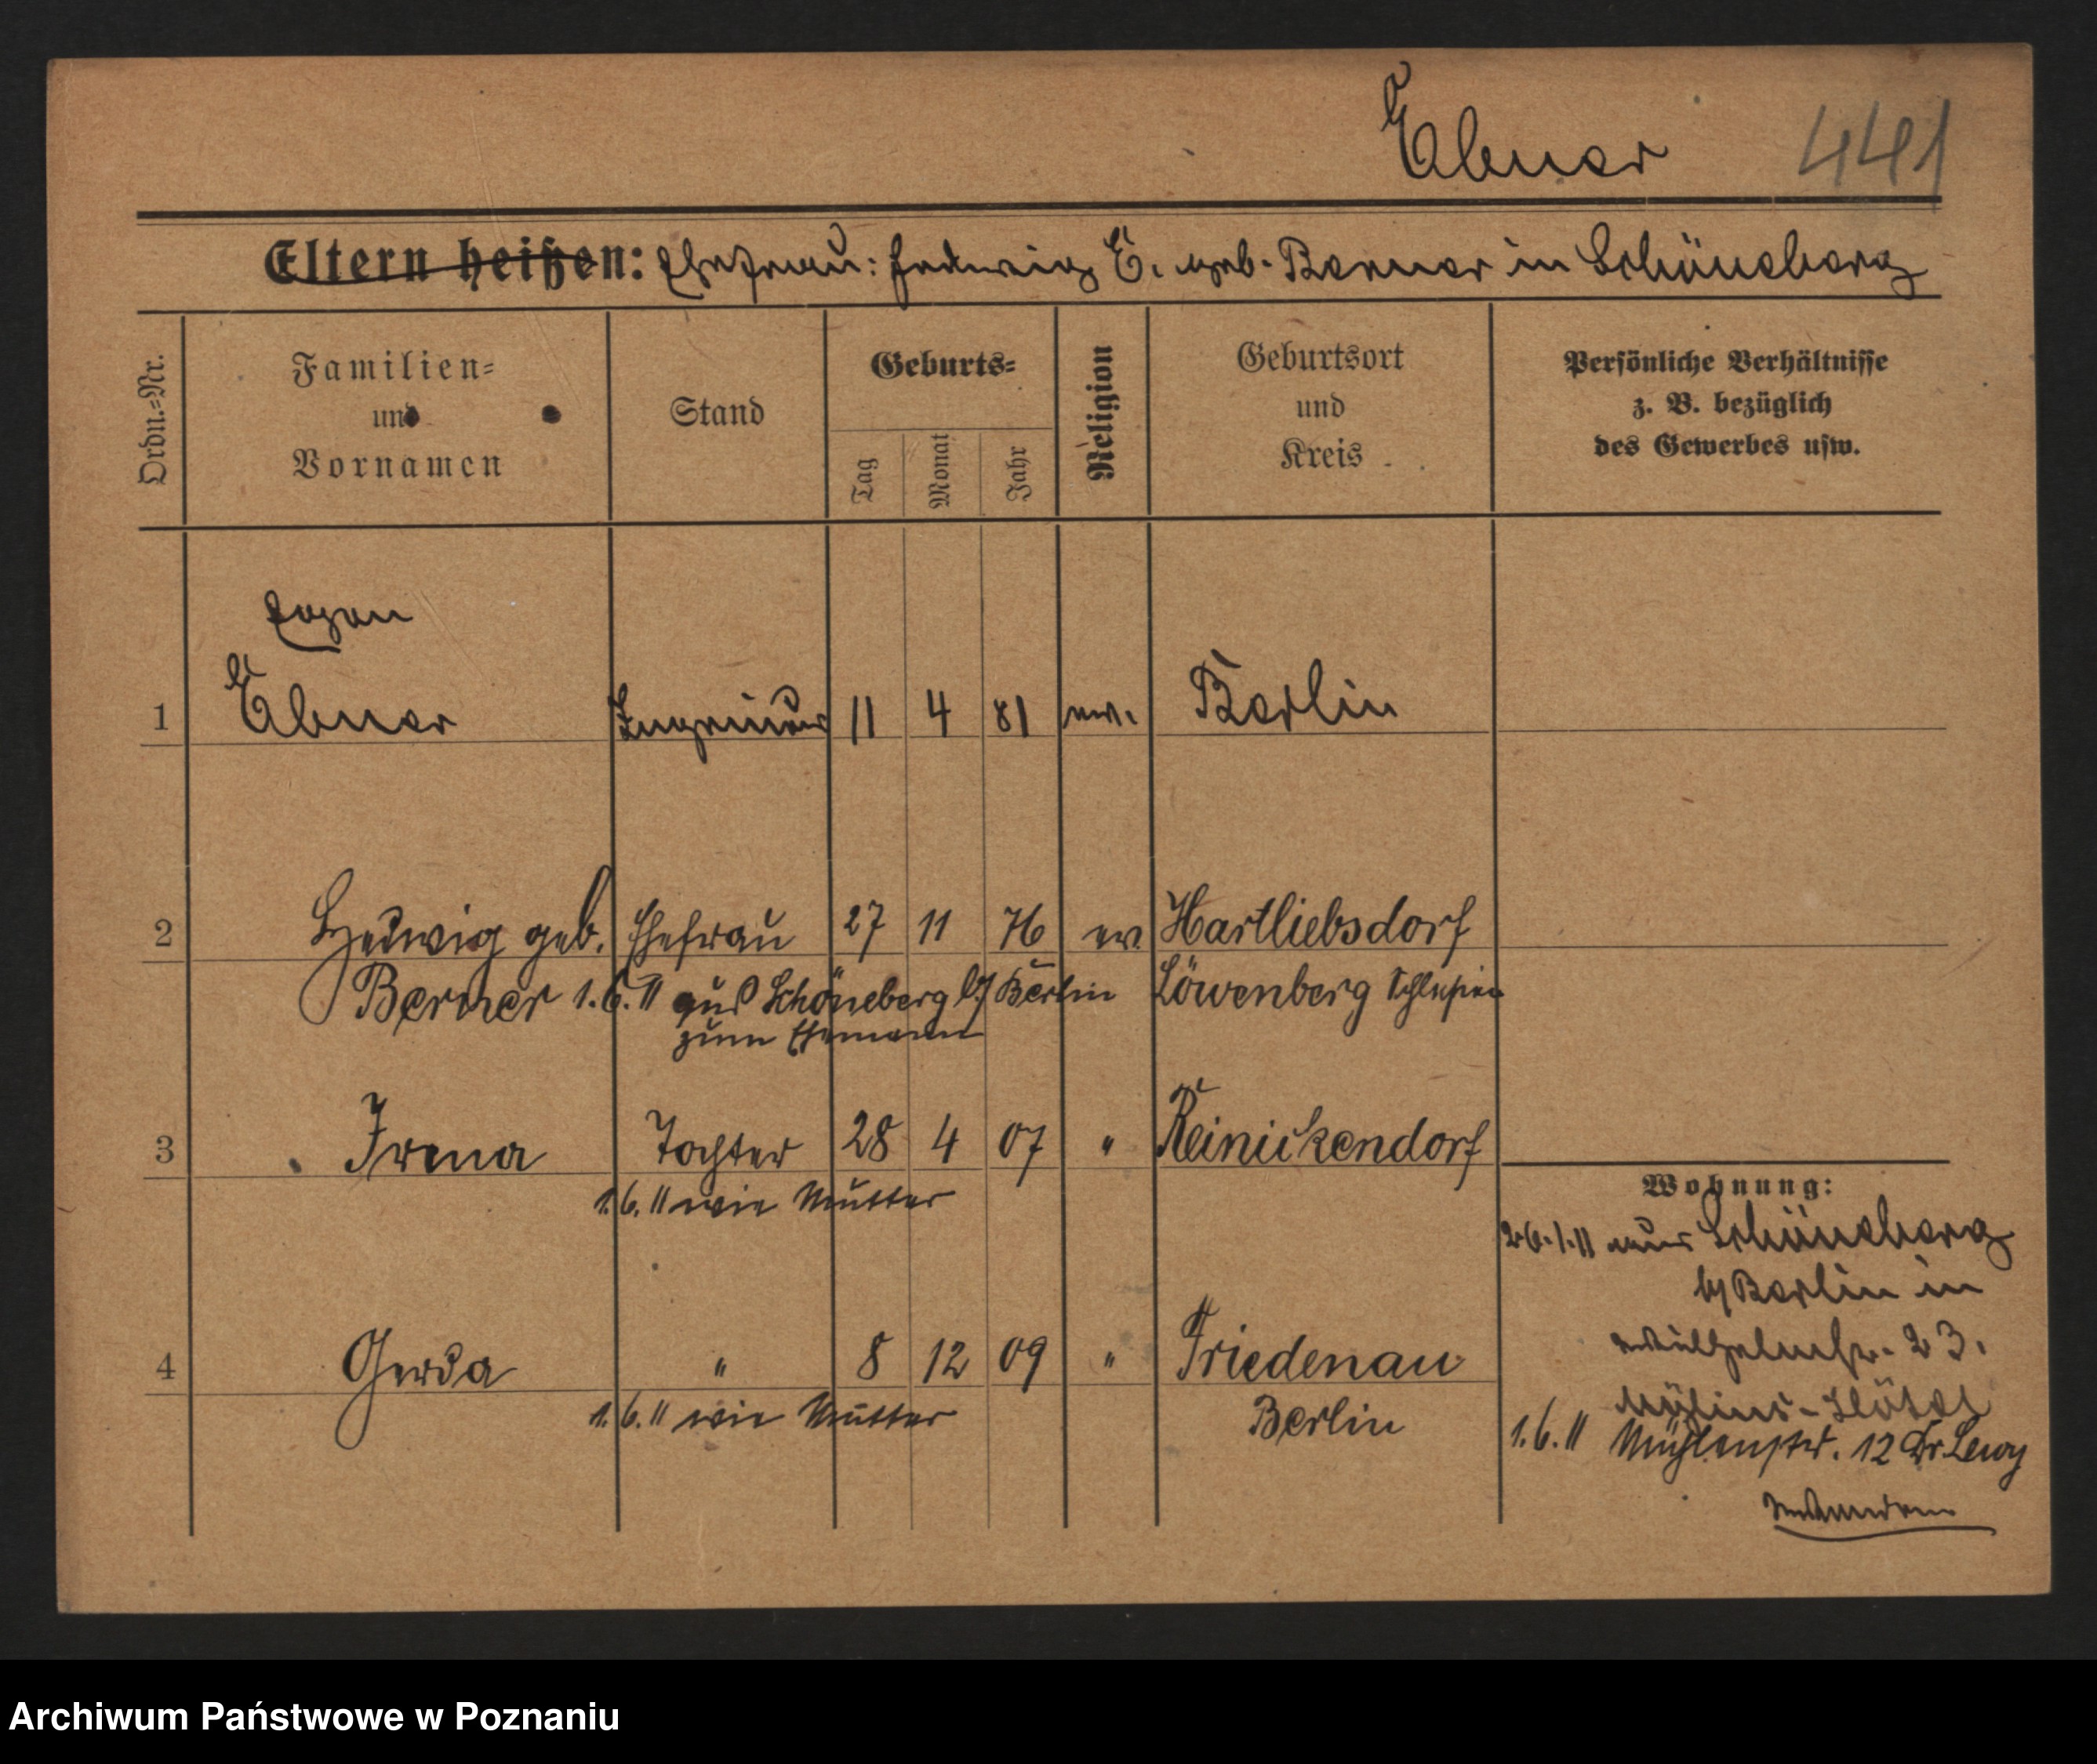 Ebner 441
Eltern heißen: Ehefrau: Hedwig E. geb. Berner in Schöneberg
Ordn.=Nr.
Familien=
und
Vornamen
Stand
Geburts=
Tag
Monat
Jahr
Religion
Geburtsort
und
Kreis
Persönliche Verhältnisse
z. B. bezüglich
des Gewerbes usw.
Eugen
1 Ebner Ingenieur 11 4 81 ev. Berlin
2 Hedwig geb. Ehefrau 27 11 76 ev. Hartliebsdorf
Berner 1.6.11 aus Schöneberg b/ Berlin Löwenberg Schlesien
zum Ehemann
3 Irena Tochter 28 4 07 " Reinickendorf
1.6.11 wie Mutter
Wohnung:
26.1.11 aus Schöneberg
b/ Berlin in
Wilhelmstr. 23.
4 Gerda " 8 12 09 " Friedenau
1.6.11 wie Mutter Berlin
Mylius-Hôtel
1.6.11 Mühlenstr. 12 Dr. Lewy
Archiwum Państwowe w Poznaniu